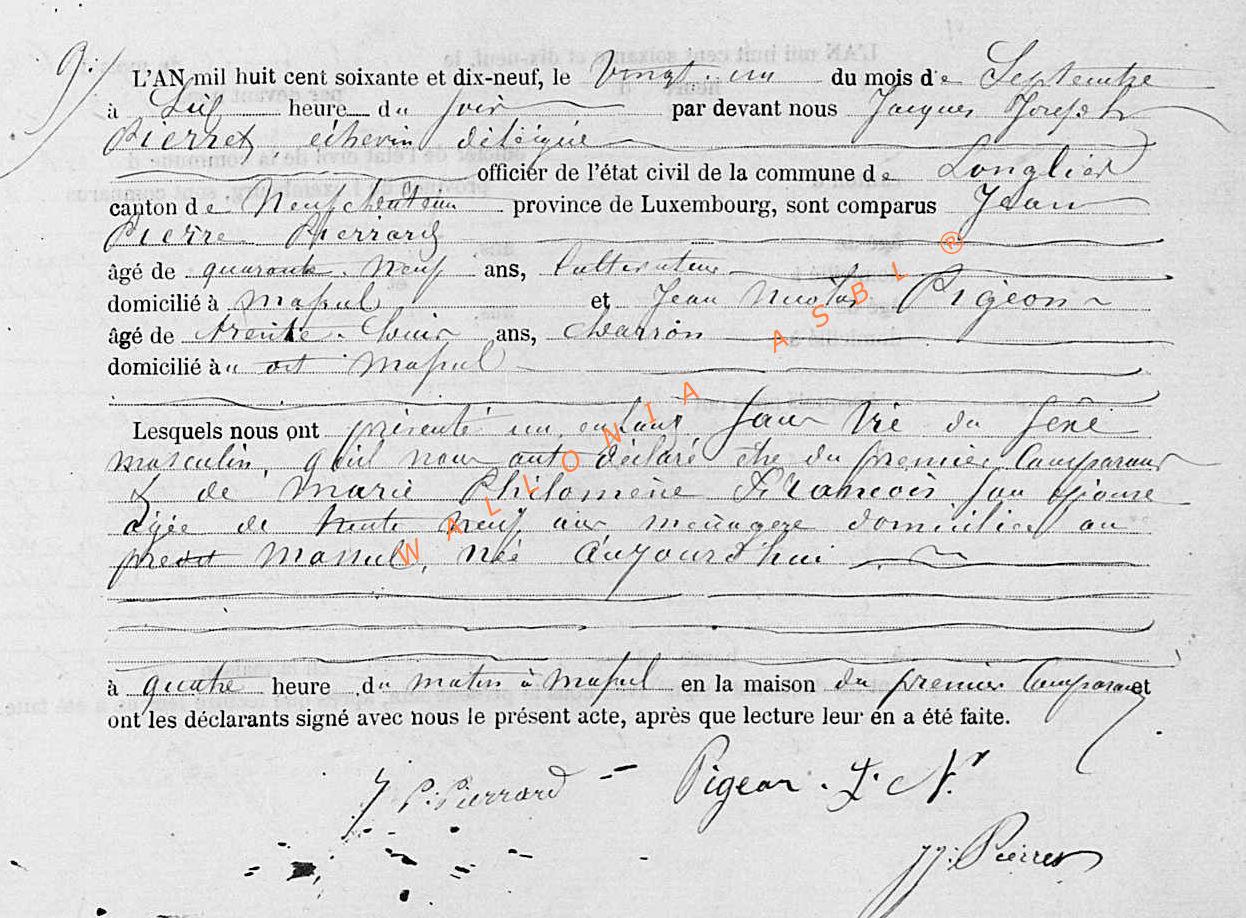 9./
L'AN mil huit cent soixante et dix-neuf, le vingt-un du mois de Septembre
à Six heure du soir par devant nous Jacques Joseph
Pierret échevin délégué
officier de l'état civil de la commune de Longlier
canton de Neufchateau province de Luxembourg, sont comparus Jean
Pierre Pierrard
âgé de quarante-neuf ans, Cultivateur
domicilié à Massul et Jean Nicolas Pigeon
âgé de trente-huit ans, charron
domicilié àu dit Massul
Lesquels nous ont présenté un enfant sans vie du sexe
masculin, qu'il nous ont déclaré être du premier Comparant
& de Marie Philomène François son épouse
âgée de trente neuf ans menagere domiciliée au
predit Massul, née aujourd'hui
à quatre heure du matin à Massul en la maison du premier Comparant et
ont les déclarants signé avec nous le présent acte, après que lecture leur en a été faite.
J P. Pierrard Pigeon J. N.
JJ. Pierret
WALLONIA ASBL ®